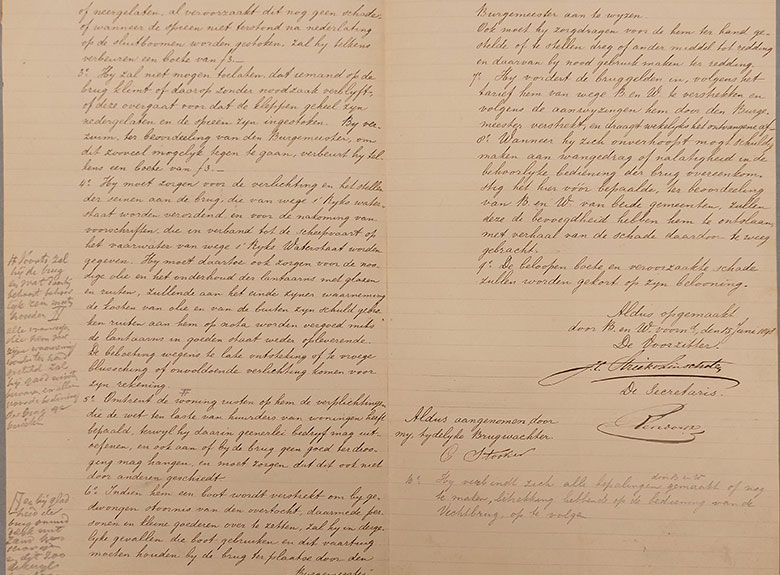 of neergelaten, al veroorzaakt dit nog geen schade,
of wanneer de speeën niet terstond na nederlating
op de sluitboomen worden gestoken, zal hij telkens
verbeuren een boete van ƒ3.—
3º Hij zal niet mogen toelaten, dat iemand op de
brug klimt of daarop zonder noodzaak verblijft,
of deze overgaat voor dat de kleppen geheel zijn
nedergelaten en de speeën zijn ingestoken. Bij ver-
zuim, ter beoordeeling van den Burgemeester, om
dit zooveel mogelijk tegen te gaan, verbeurt hij tel-
kens een boete van ƒ3.—
4º Hij moet zorgen voor de verlichting en het stellen
der seinen aan de brug, die van wege 's Rijks water-
staat worden verordend en voor de nakoming van
voorschriften, die in verband tot de scheepvaart op
het vaarwater van wege 's Rijks Waterstaat worden
gegeven. Hij moet daartoe ook zorgen voor de noo-
dige olie en het onderhoud der lantaarns met glazen
en ruiten, zullende aan het einde zijner waarneming
de kosten van olie en van de buiten zijn schuld gebro-
ken ruiten aan hem op nota worden vergoed mits
de lantaarns in goeden staat weder opleverende.
De beboeting wegens te late ontsteking of te vroege
blussching of onvoldoende verlichting komen voor
zijn rekening.
5º Omtrent de woning rusten op hem de verplichtingen
die de wet ten laste van huurders van woningen heeft
bepaald, terwijl hij daarin geenerlei bedrijf mag uit-
oefenen, en ook aan of bij de brug geen goed ter droo-
ging mag hangen, en moet zorgen dat dit ook niet
door anderen geschiedt
6º Indien hem een boot wordt verstrekt om bij ge-
dwongen stoornis van den overtocht, daarmede per-
sonen en kleine goederen over te zetten, zal hij in derge-
lijke gevallen die boot gebruiken en dit vaartuig
moeten houden bij de brug ter plaatse door den
Burgemeester
Burgemeester aan te wijzen.
Ook moet hij zorgdragen voor de hem ter hand ge-
stelde of te stellen dreg of ander middel tot redding
en daarvan bij nood gebruik maken ter redding.
7º Hij vordert de bruggelden in, volgens het
tarief hem van wege B. en W. te verstrekken en
volgens de aanwijzingen hem door den Burge-
meester verstrekt, en draagt wekelijks het ontvangene af.
8º Wanneer hij zich onverhoopt mogt schuldig
maken aan wangedrag of nalatigheid in de
behoorlijke bediening der brug overeenkom-
stig het hier vóór bepaalde, ter beoordeeling
van B. en W. van beide gemeenten, zullen
deze de bevoegdheid hebben hem te ontslaan,
met verhaal van de schade daardoor te weeg
gebracht.
9º De beloopen boete en veroorzaakte schade
zullen worden gekort op zijn belooning.
Aldus opgemaakt
door B. en W. voorn<sup>d</sup>, den 15 Juni
De Voorzitter
De Secretaris.
Aldus aangenomen door
mij, tijdelijke Brugwachter.
10º Hij verbindt zich alle bepalingen door B en W gemaakt of nog
te maken, betrekking hebbende op de bediening van de
Vechtbrug, op te volgen